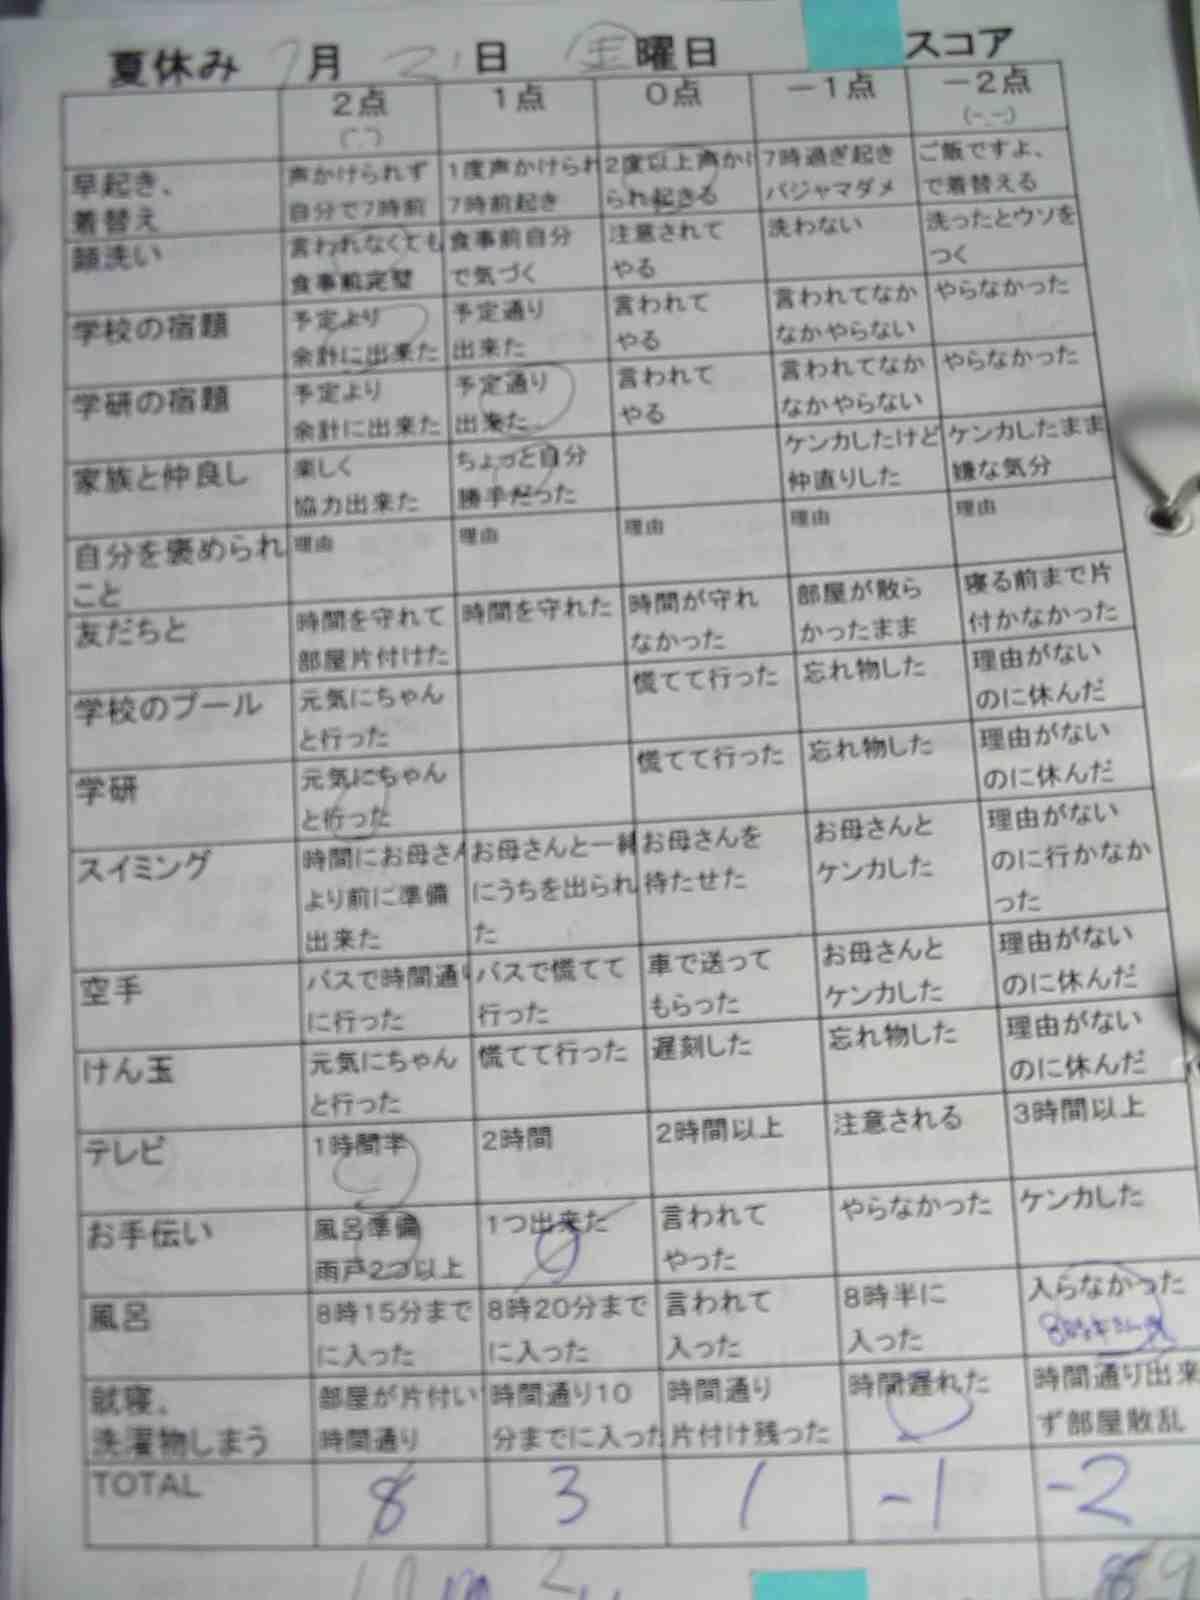 夏休み 7月 21日 金曜日 スコア
2点 1点 0点 -1点 -2点
(-.-)
早起き、 声かけられず 1度声かけられ 2度以上声かけ 7時過ぎ起き ご飯ですよ、
着替え 自分で7時前 7時前起き られ起きる パジャマダメ で着替える
顔洗い 言われなくても 食事前自分 注意されて 洗わない 洗ったとウソを
食事前完璧 で気づく やる つく
学校の宿題 予定より 予定通り 言われて 言われてなか やらなかった
余計に出来た 出来た やる なかやらない
学研の宿題 予定より 予定通り 言われて 言われてなか やらなかった
余計に出来た 出来た やる なかやらない
家族と仲良し 楽しく ちょっと自分 ケンカしたけど ケンカしたまま
協力出来た 勝手だった 仲直りした 嫌な気分
自分を褒められ 理由 理由 理由 理由 理由
こと
友だちと 時間を守れて 時間を守れた 時間が守れ 部屋が散ら 寝る前まで片
部屋片付けた なかった かったまま 付かなかった
学校のプール 元気にちゃん 慌てて行った 忘れ物した 理由がない
と行った のに休んだ
学研 元気にちゃん 慌てて行った 忘れ物した 理由がない
と行った のに休んだ
スイミング 時間にお母さん お母さんと一緒 お母さんを お母さんと 理由がない
より前に準備 にうちを出られ 待たせた ケンカした のに行かなか
出来た た った
空手 バスで時間通り バスで慌てて 車で送って お母さんと 理由がない
に行った 行った もらった ケンカした のに休んだ
けん玉 元気にちゃん 慌てて行った 遅刻した 忘れ物した 理由がない
と行った のに休んだ
テレビ 1時間半 2時間 2時間以上 注意される 3時間以上
お手伝い 風呂準備 1つ出来た 言われて やらなかった ケンカした
雨戸2つ以上 やった
風呂 8時15分まで 8時20分まで 言われて 8時半に 入らなかった
に入った に入った 入った 入った
就寝、 部屋が片付い 時間通り10 時間通り 時間遅れた 時間通り出来
洗濯物しまう 時間通り 分までに入った 片付け残った ず部屋散乱
TOTAL 8 3 1 -1 -2